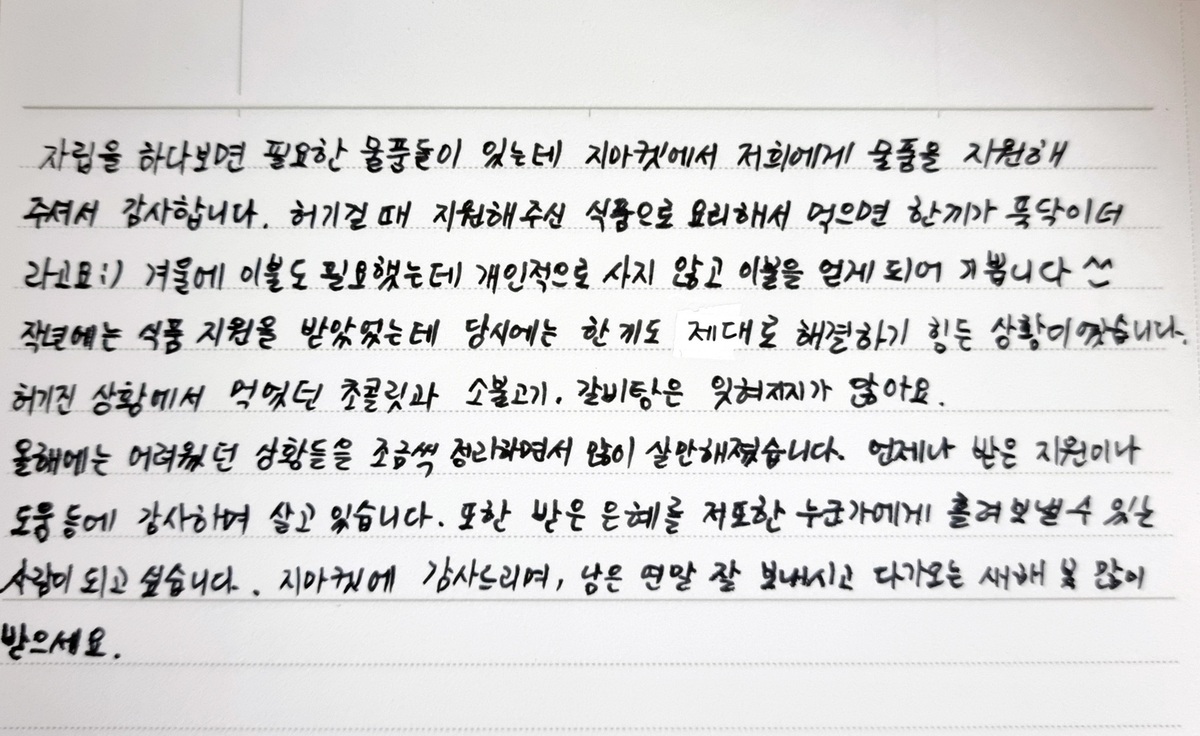 자립을 하다보면 필요한 물품들이 있는데 지마켓에서 저희에게 물품을 지원해
주셔서 감사합니다. 허기질 때 지원해주신 식품으로 요리해서 먹으면 한끼가 뚝딱이더
라고요:) 겨울에 이불도 필요했는데 개인적으로 사지 않고 이불을 얻게 되어 기쁩니다 ^^
작년에는 식품 지원을 받았었는데 당시에는 한끼도 제대로 해결하기 힘든 상황이였습니다.
허기진 상황에서 먹었던 초콜릿과 소불고기, 갈비탕은 잊혀지지가 않아요.
올해에는 어려웠던 상황들을 조금씩 정리하면서 많이 살만해졌습니다. 언제나 받은 지원이나
도움 등에 감사하며 살고 있습니다. 또한 받은 은혜를 저또한 누군가에게 흘려보낼 수 있는
사람이 되고 싶습니다. 지마켓에 감사드리며, 남은 연말 잘 보내시고 다가오는 새해 복 많이
받으세요.